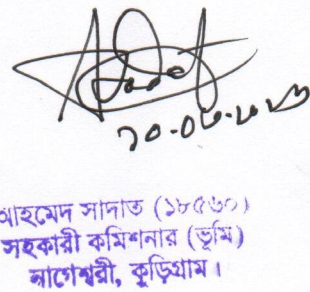 আহমেদ সাদাত (১৮৫৬০)
সহকারী কমিশনার (ভূমি)
নাগেশ্বরী, কুড়িগ্রাম।